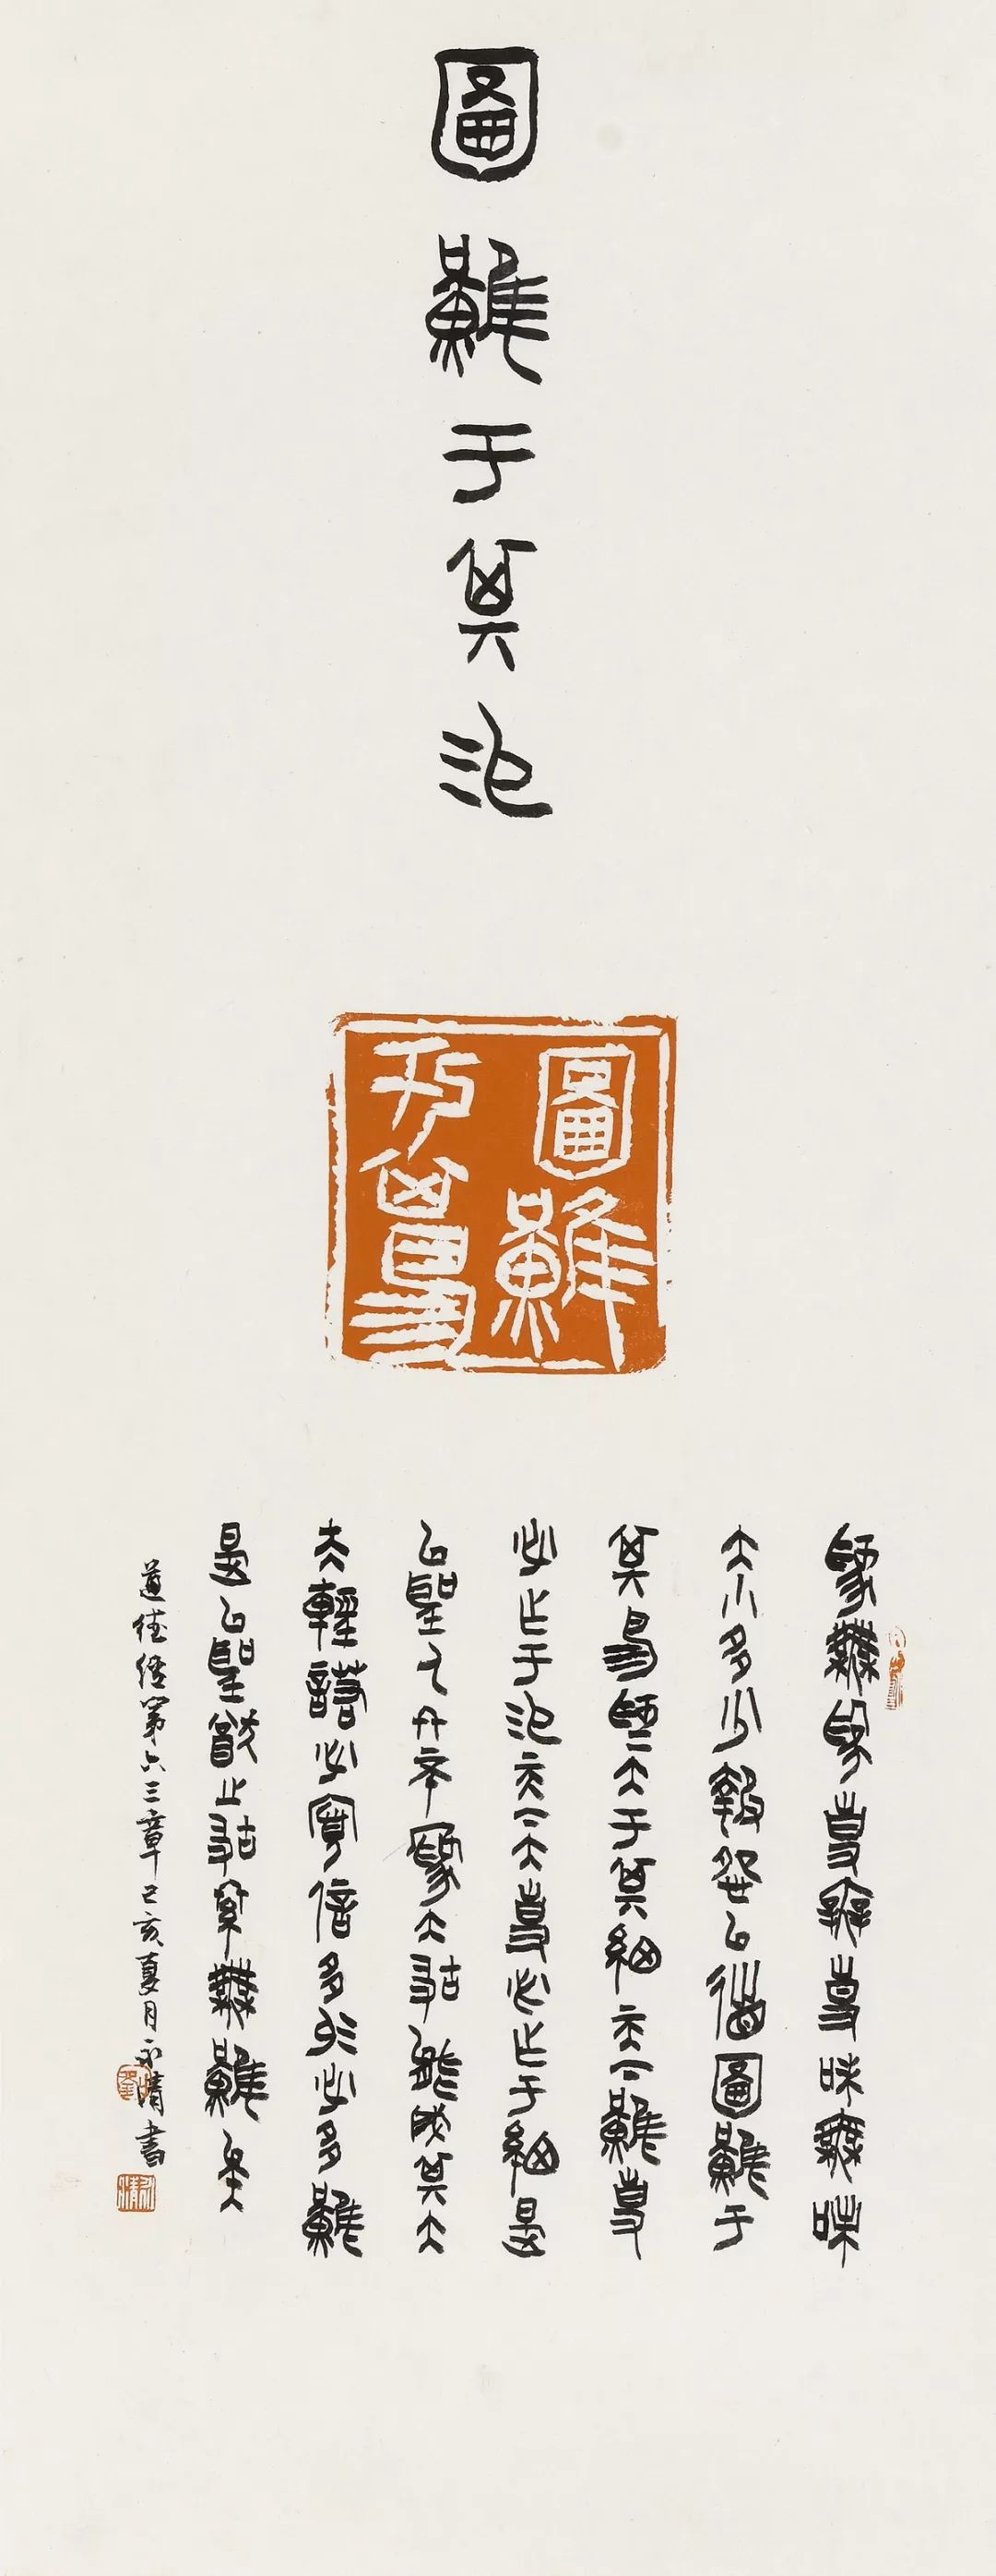 圖難于其易
圖難
於其易
為無為事無事味無味
大小多少報怨以德圖難于
其易為大于其細天下難事
必乍于易天下大事必乍于細是
以聖人終不為大故能成其大
夫輕諾必寡信多易必多難
是以聖猷之故終無難矣
道德經第六三章己亥夏月永晴書